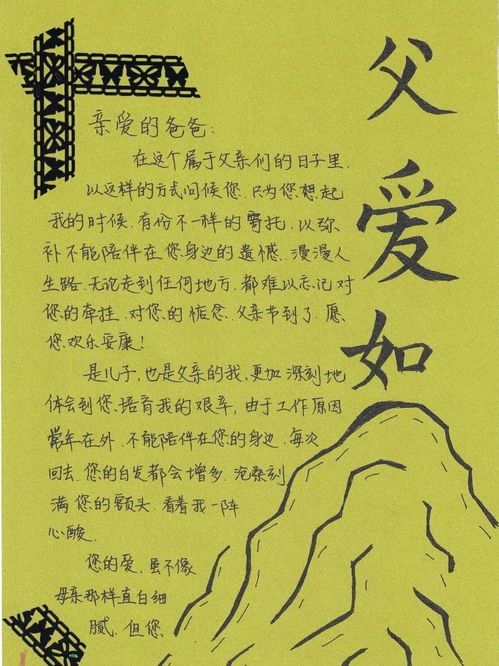 父爱如
亲爱的爸爸:
在这个属于父亲们的日子里.
以这样的方式问候您.只为您想起
我的时候.有份不一样的寄托.以弥
补不能陪伴在您身边的遗憾.漫漫人
生路.无论走到任何地方.都难以忘记对
您的牵挂.对您的惦念.父亲节到了.愿
您欢乐安康!
是儿子,也是父亲的我.更加深刻地
体会到您.培育我的艰辛.由于工作原因
常年在外.不能陪伴在您的身边.每次
回去.您的白发都会增多.沧桑刻
满您的额头.看着我一阵
心酸.
您的爱.虽不像
母亲那样直白细
腻.但您.